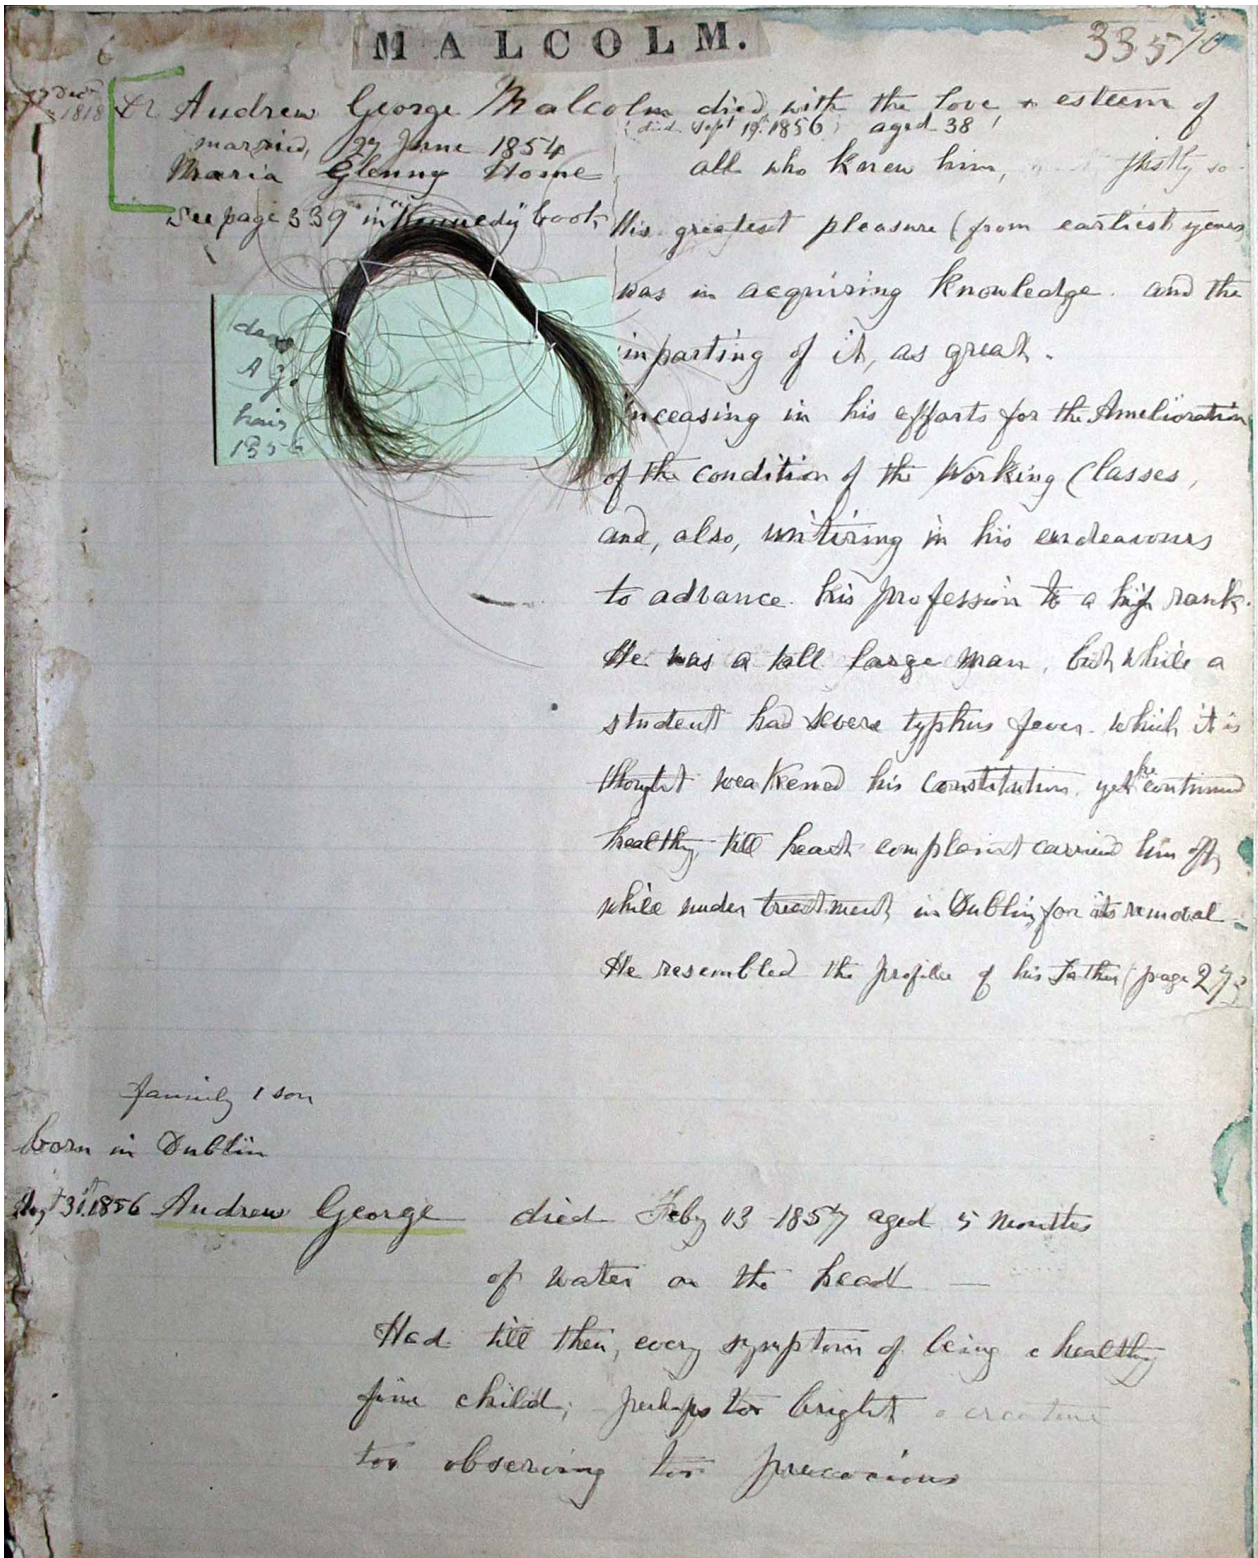 MALCOLM.
335/70
6
Decr
1818
Dr Andrew George Malcolm died with the love & esteem of
died Sept 19th 1856 aged 38
married, 27 June 1854
Maria Glenny Home all who knew him, justly so
See page 339 in "Kennedy" book
His greatest pleasure (from earliest years
was in acquiring knowledge. and the
imparting of it, as great.
dear
A G.
hair
1856
inceasing in his efforts for the Amelioration
of the condition of the Working Classes,
and, also, untiring in his endeavours
to advance his profession to a high rank.
He was a tall large man, but while a
student had severe typhus fever which it is
thought weakened his constitution, yet he continued
healthy, till heart complaint carried him off,
while under treatment, in Dublin, for its removal
He resembled the profile of his Father (page 273
family 1 son
born in Dublin
Augt 31st 1856 Andrew George died Feby 03 1857 aged 5 months
of water on the head —
Had till then, every symptom of being a healthy
fine child; perhaps too bright a creature
too observing too precocious